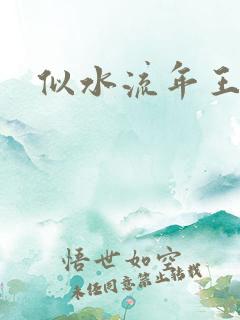 似水流年王
悟世如空
未经同意禁止转载